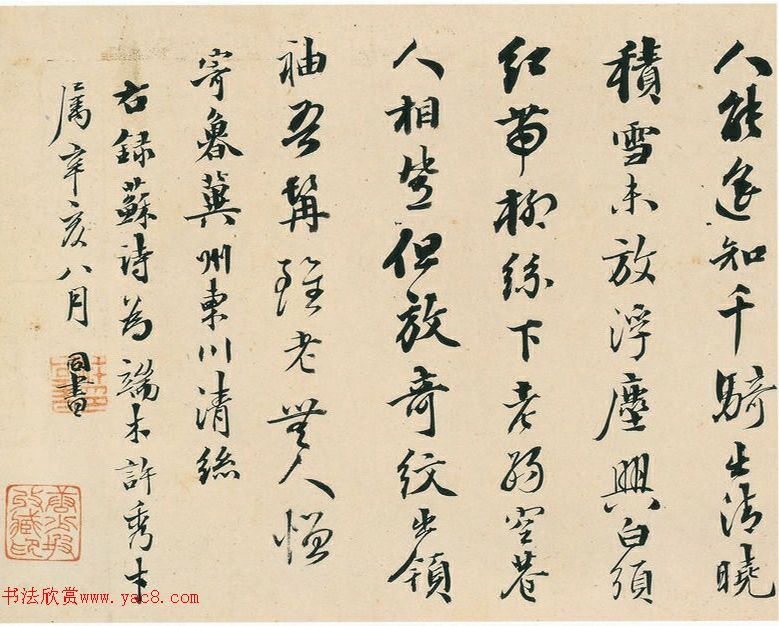 人能遥知千騎出清曉
積雪未放浮塵興白須
紅帶柳絲下老弱空巷
人相登但放奇紋出領
袖吾髯雖老無人憎
寄魯冀州東川清絲
右録蘇詩為端木許秀才
屬辛亥八月 同書
收藏印
书法欣赏www.yac8.com